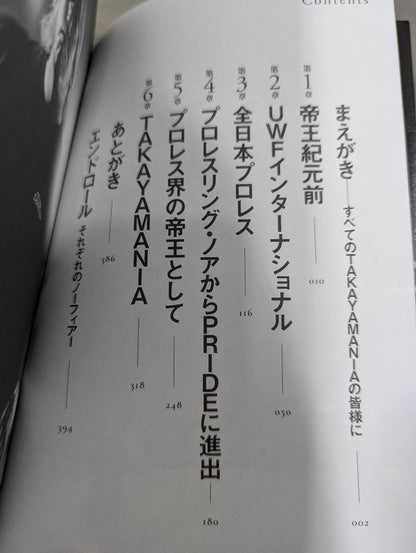 Contents
まえがき――すべてのTAKAYAMANIAの皆様に――002
第1章 帝王紀元前――010
第2章 UWFインターナショナル――050
第3章 全日本プロレス――116
第4章 プロレスリング・ノアからPRIDEに進出――180
第5章 プロレス界の帝王として――248
第6章 TAKAYAMANIA――318
あとがき――386
エンドロール それぞれのノーフィアー――394